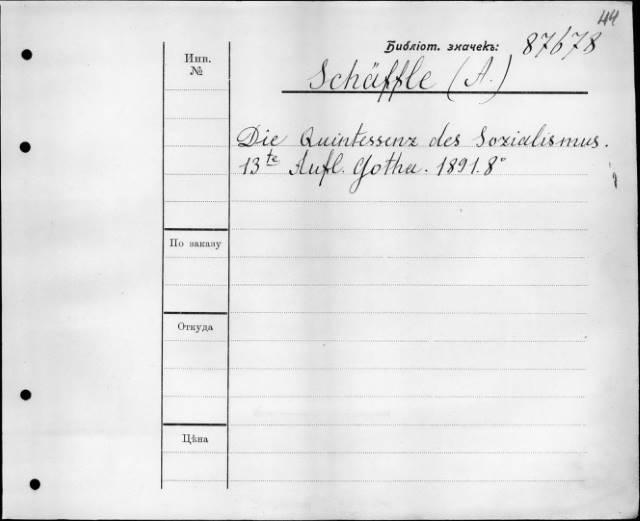 44
Библіот. значекъ: 87678
Инв.
№
Schäffle (A.)
Die Quintessenz des Sozialismus.
13te Aufl. Gotha. 1891. 8°
По заказу
Откуда
Цѣна